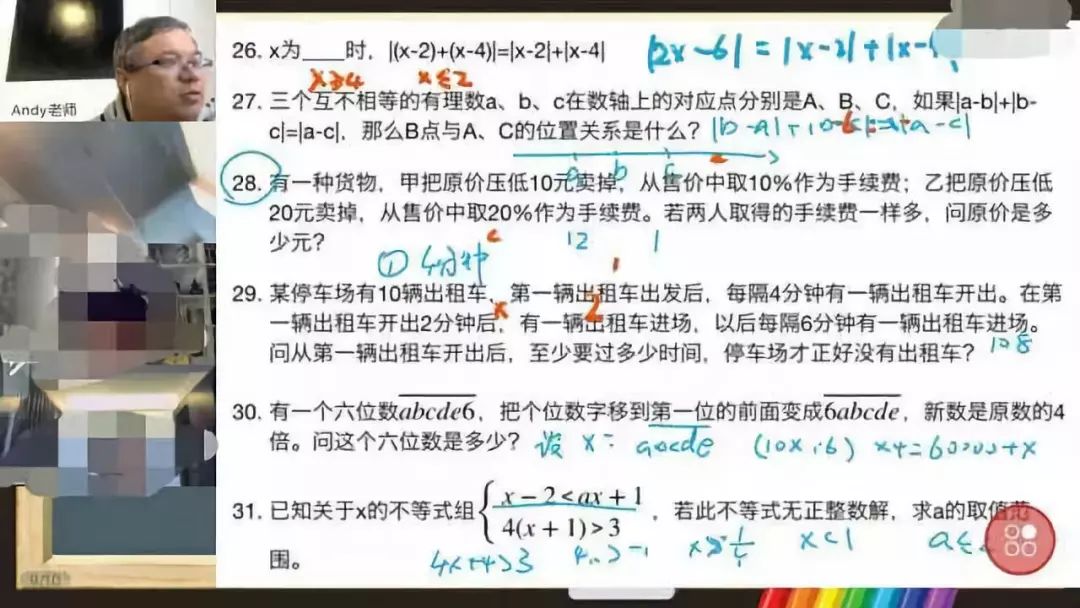 Andy老师
26. x为____时，|(x-2)+(x-4)|=|x-2|+|x-4|
|2x-6|=|x-2|+|x-
x≥4 x≤2
27. 三个互不相等的有理数a、b、c在数轴上的对应点分别是A、B、C，如果|a-b|+|b-
c|=|a-c|，那么B点与A、C的位置关系是什么？
a b c
28. 有一种货物，甲把原价压低10元卖掉，从售价中取10%作为手续费；乙把原价压低
20元卖掉，从售价中取20%作为手续费。若两人取得的手续费一样多，问原价是多
少元？
① 4分钟 12 1
29. 某停车场有10辆出租车、第一辆出租车出发后，每隔4分钟有一辆出租车开出。在第
一辆出租车开出2分钟后，有一辆出租车进场，以后每隔6分钟有一辆出租车进场。
问从第一辆出租车开出后，至少要过多少时间，停车场才正好没有出租车？ 108
30. 有一个六位数abcde6，把个位数字移到第一位的前面变成6abcde，新数是原数的4
倍。问这个六位数是多少？ 设 x= abcde (10x+6) x4=600000+x
31. 已知关于x的不等式组{x-2<ax+1
4(x+1)>3
，若此不等式无正整数解，求a的取值范
围。
4x+4>3 x<1 a≤